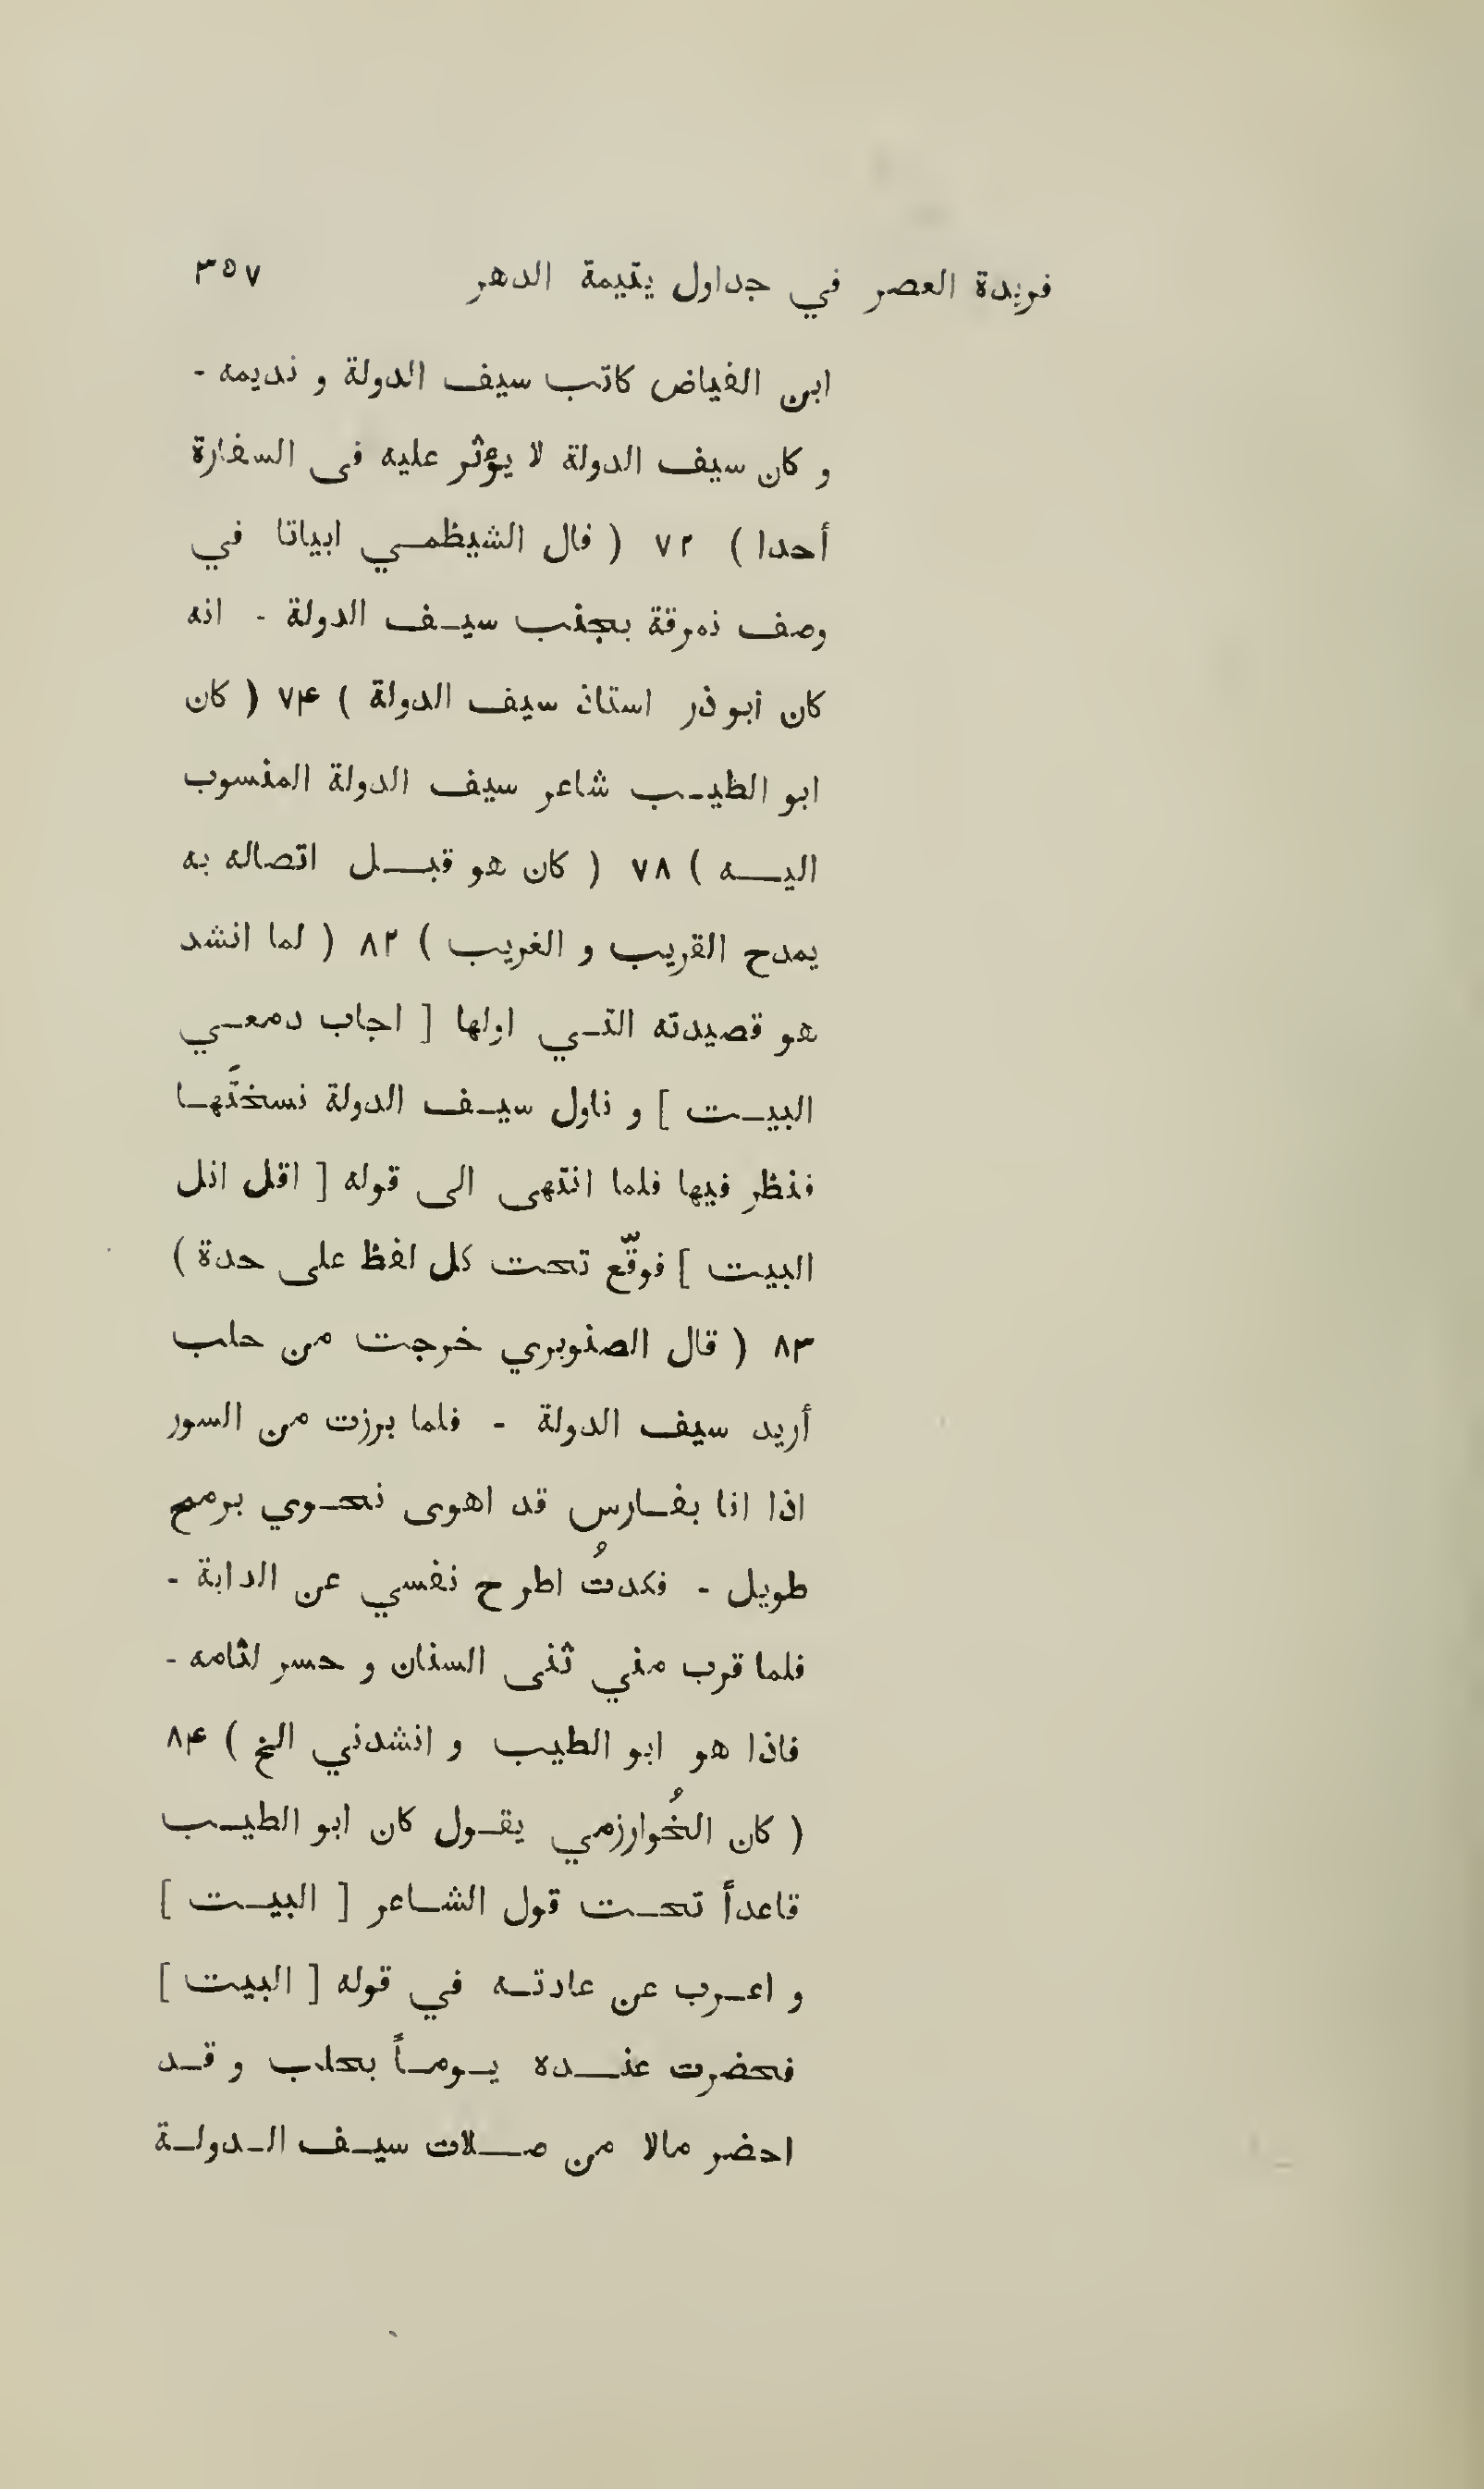 فريدة العصر في جداول يتيمة الدهر ٣٥٧
ابن الفياض كاتب سيف الدولة و نديمه -
و كان سيف الدولة لا يؤثر عليه فى السفارة
أحدا ) ٧٢ ( قال الشيظمي ابياتا في
وصف نمرقة بجنب سيف الدولة - انه
كان ابو ذر استاذ سيف الدولة ) ٧۴ ( كان
ابو الطيب شاعر سيف الدولة المنسوب
اليه ) ٧٨ ( كان هو قبل اتصاله به
يمدح القريب و الغريب ) ٨٢ ( لما انشد
هو قصيدته التي اولها [ اجاب دمعي
البيت ] و ناول سيف الدولة نسختَها
فنظر فيها فلما انتهى الى قوله [ اقل انل
البيت ] فوقّع تحت كل لفظ على حدة )
٨٣ ( قال الصنوبري خرجت من حلب
أريد سيف الدولة - فلما برزت من السور
اذا انا بفارس قد اهوى نحوي برمح
طويل - فكدتُ اطرح نفسي عن الدابة -
فلما قرب مني ثنى السنان و حسر لثامه -
فاذا هو ابو الطيب و انشدني الخ ) ٨۴
( كان الخُوارزمي يقول كان ابو الطيب
قاعداً تحت قول الشاعر [ البيت ]
و اعرب عن عادته في قوله [ البيت ]
فحضرت عنده يوماً بحلب و قد
احضر مالا من صلات سيف الدولة